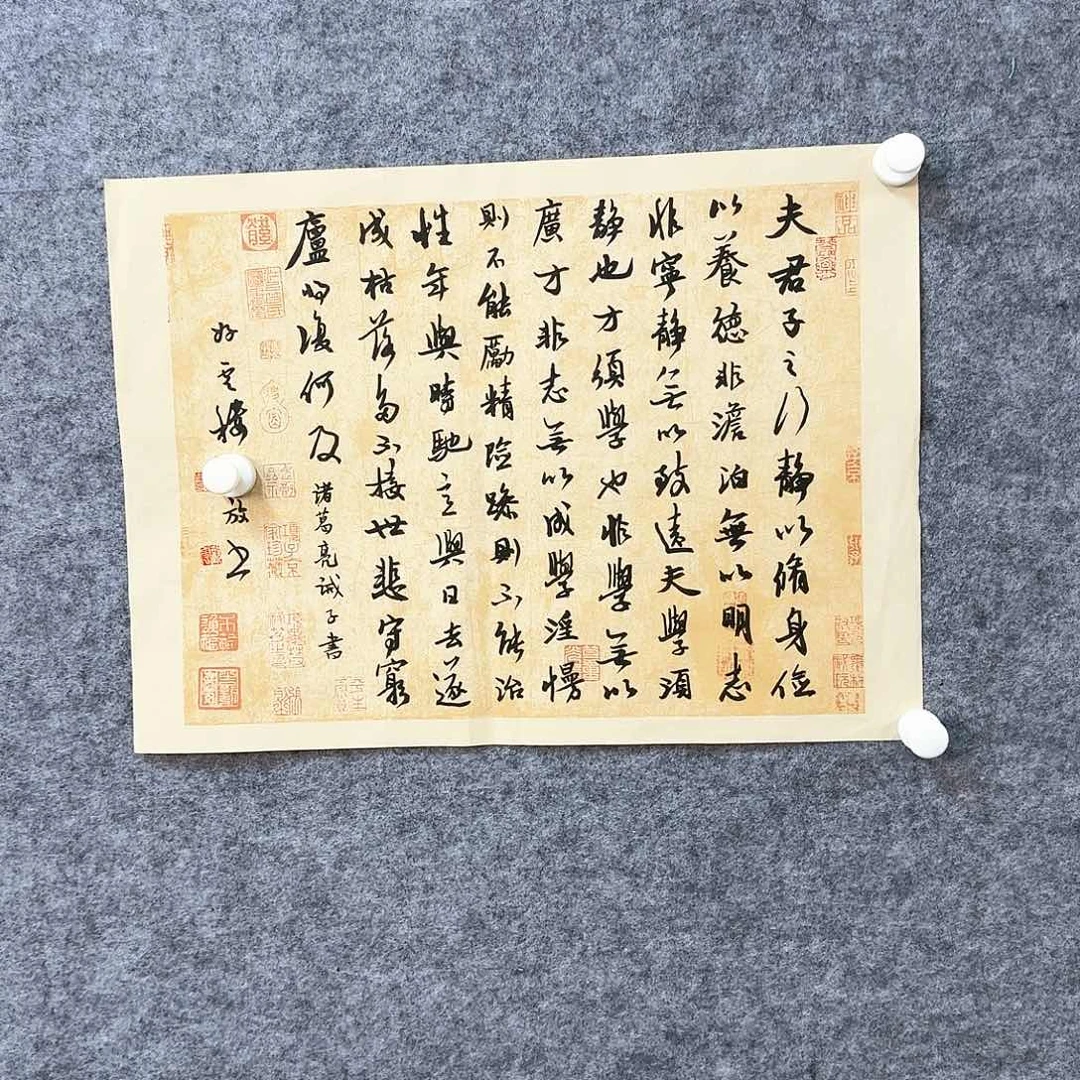 夫君子之行静以脩身俭
以養德非澹泊無以明志
非寧静無以致遠夫學須
静也才須學也非學無以
廣才非志無以成學淫慢
則不能勵精险躁則不能治
性年與時馳意與日去遂
成枯落多不接世悲守窮
廬将復何及
諸葛亮诫子書
放书